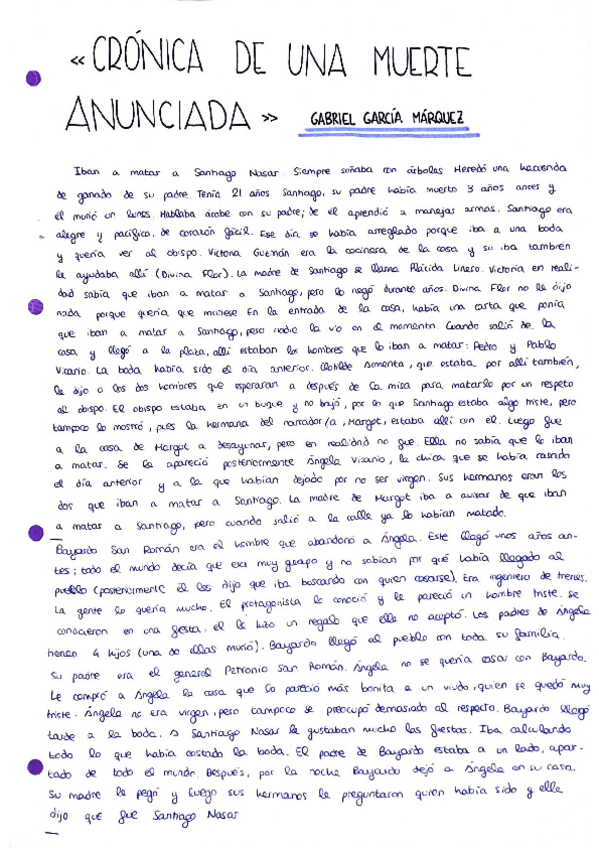 « CRÓNICA DE UNA MUERTE
ANUNCIADA » GABRIEL GARCÍA MÁRQUEZ
Iban a matar a Santiago Nasar. Siempre soñaba con árboles Heredó una hacienda
de ganado de su padre. Tenía 21 años Santiago, su padre había muerto 3 años antes y
él murió un lunes. Hablaba árabe con su padre; de él aprendió a manejar armas. Santiago era
alegre y pacífico, de corazón fácil. Ese día se había arreglado porque iba a una boda
y quería ver al obispo. Victoria Guzmán era la cocinera de la casa y su iba también
le ayudaba allí (Divina Flor). La madre de Santiago se llama Plácida Linero. Victoria en reali-
dad sabía que iban a matar a Santiago, pero lo negó durante años. Divina Flor no le dijo
nada porque quería que muriese En la entrada de la casa, había una carta que ponía
que iban a matar a Santiago, pero nadie la vio en el momento. Cuando salió de la
casa y llegó a la plaza, allí estaban los hombres que lo iban a matar: Pedro y Pablo
Vicario. La boda había sido el día anterior. Clotilde Armenta, que estaba por allí también,
le dijo a los dos hombres que esperaran a después de la misa para matarlo por un respeto
al obispo. El obispo estaba en un buque y no bajó, por lo que Santiago estaba algo triste, pero
tampoco lo mostró, pues la hermana del narrador/a, Margot, estaba allí con él. Luego fue
a la casa de Margot a desayunar, pero en realidad no fue. Ella no sabía que lo iban
a matar. Se la apareció posteriormente Ángela Vicario, la chica que se había casado
el día anterior y a la que habían dejado por no ser virgen. Sus hermanos eran los
dos que iban a matar a Santiago. La madre de Margot iba a avisar de que iban
a matar a Santiago, pero cuando salió a la calle ya lo habían matado.
Bayardo San Román era el hombre que abandonó a Ángela. Este llegó unos años an-
tes; todo el mundo decía que era muy guapo y no sabían por qué había llegado al
pueblo (posteriormente él les dijo que iba buscando con quien casarse). Era ingeniero de trenes.
La gente lo quería mucho. El protagonista lo conoció y le pareció un hombre triste. Se
conocieron en una fiesta. él le hizo un regalo que ella no aceptó. Los padres de Ángela
tienen 4 hijos (una de ellas murió). Bayardo llegó al pueblo con toda su familia.
Su padre era el general Petronio San Román. Ángela no se quería casar con Bayardo.
Le compró a Ángela la casa que la pareció más bonita a un viudo, quien se quedó muy
triste. Ángela no era virgen, pero tampoco se preocupó demasiado al respeto. Bayardo llegó
tarde a la boda. A Santiago Nasar le gustaban mucho las fiestas. Iba calculando
todo lo que había costado la boda. El padre de Bayardo estaba a un lado, apar-
tado de todo el mundo. Después, por la noche Bayardo dejó a Ángela en su casa.
Su madre le pegó y luego sus hermanos le preguntaron quien había sido y ella
dijo que fue Santiago Nasar